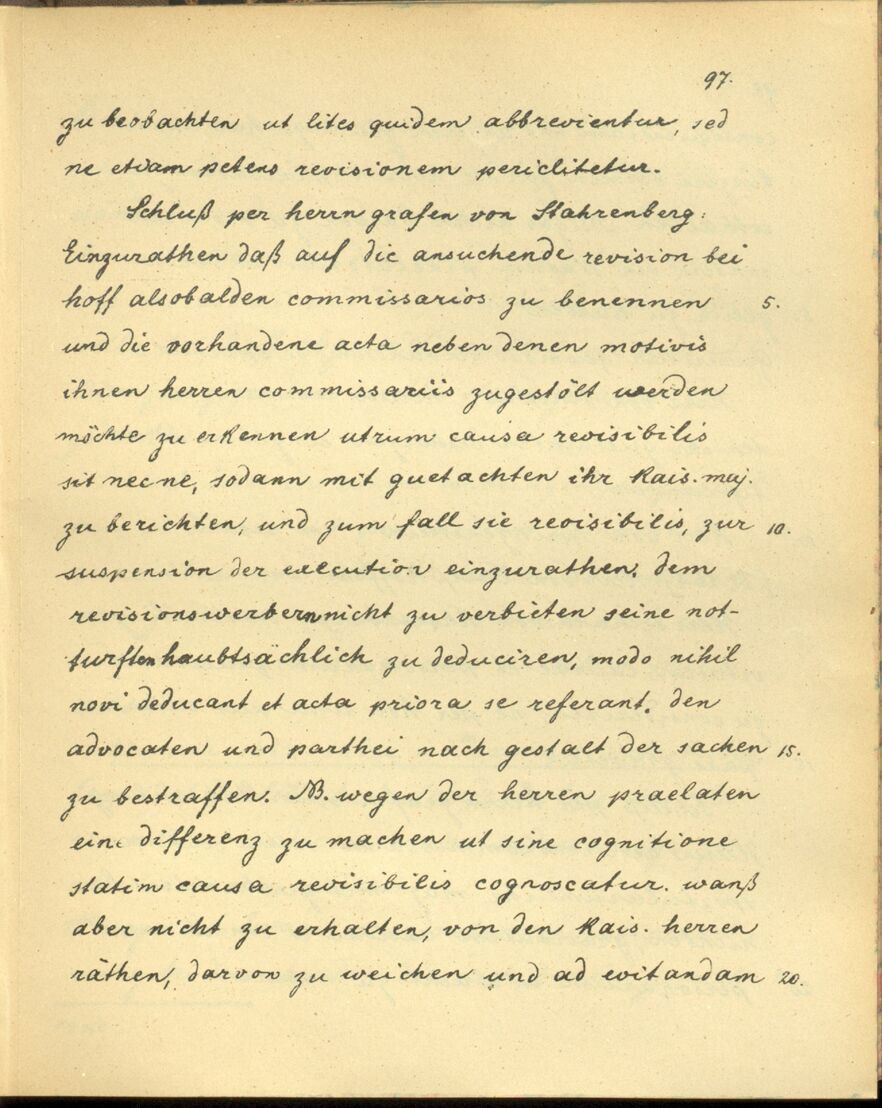 97.
zu beobachten ut lites quidem abbrevientur, sed
ne etiam petens revisionem periclitetur.
Schluß per herrn grafen von Stahrenberg:
Einzurathen daß auf die ansuchende revision bei
hoff alsobalden commissarios zu benennen 5.
und die vorhandene acta neben denen motivis
ihnen herren commissariis zugestölt werden
möchte zu erkennen utrum causa revisibilis
sit necne, sodann mit guetachten ihr kais. maj.
zu berichten, und zum fall sie revisibilis, zur 10.
suspension der execution einzurathen. dem
revisionswerbern nicht zu verbieten seine not-
turften haubtsächlich zu deduciren, modo nihil
novi deducant et acta priora se referant. den
advocaten und parthei nach gestalt der sachen 15.
zu bestraffen. NB. wegen der herren praelaten
eine differenz zu machen ut sine cognitione
statim causa revisibilis cognoscatur. wanß
aber nicht zu erhalten, von den kais. herren
räthen, darvon zu weichen und ad evitandam 20.